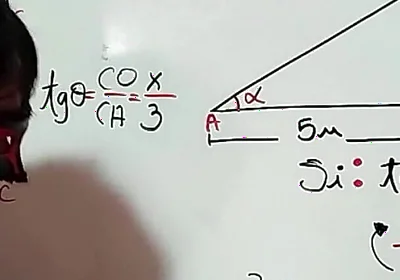 tgθ = CO/CA = X/3
α
A
5m
Si: